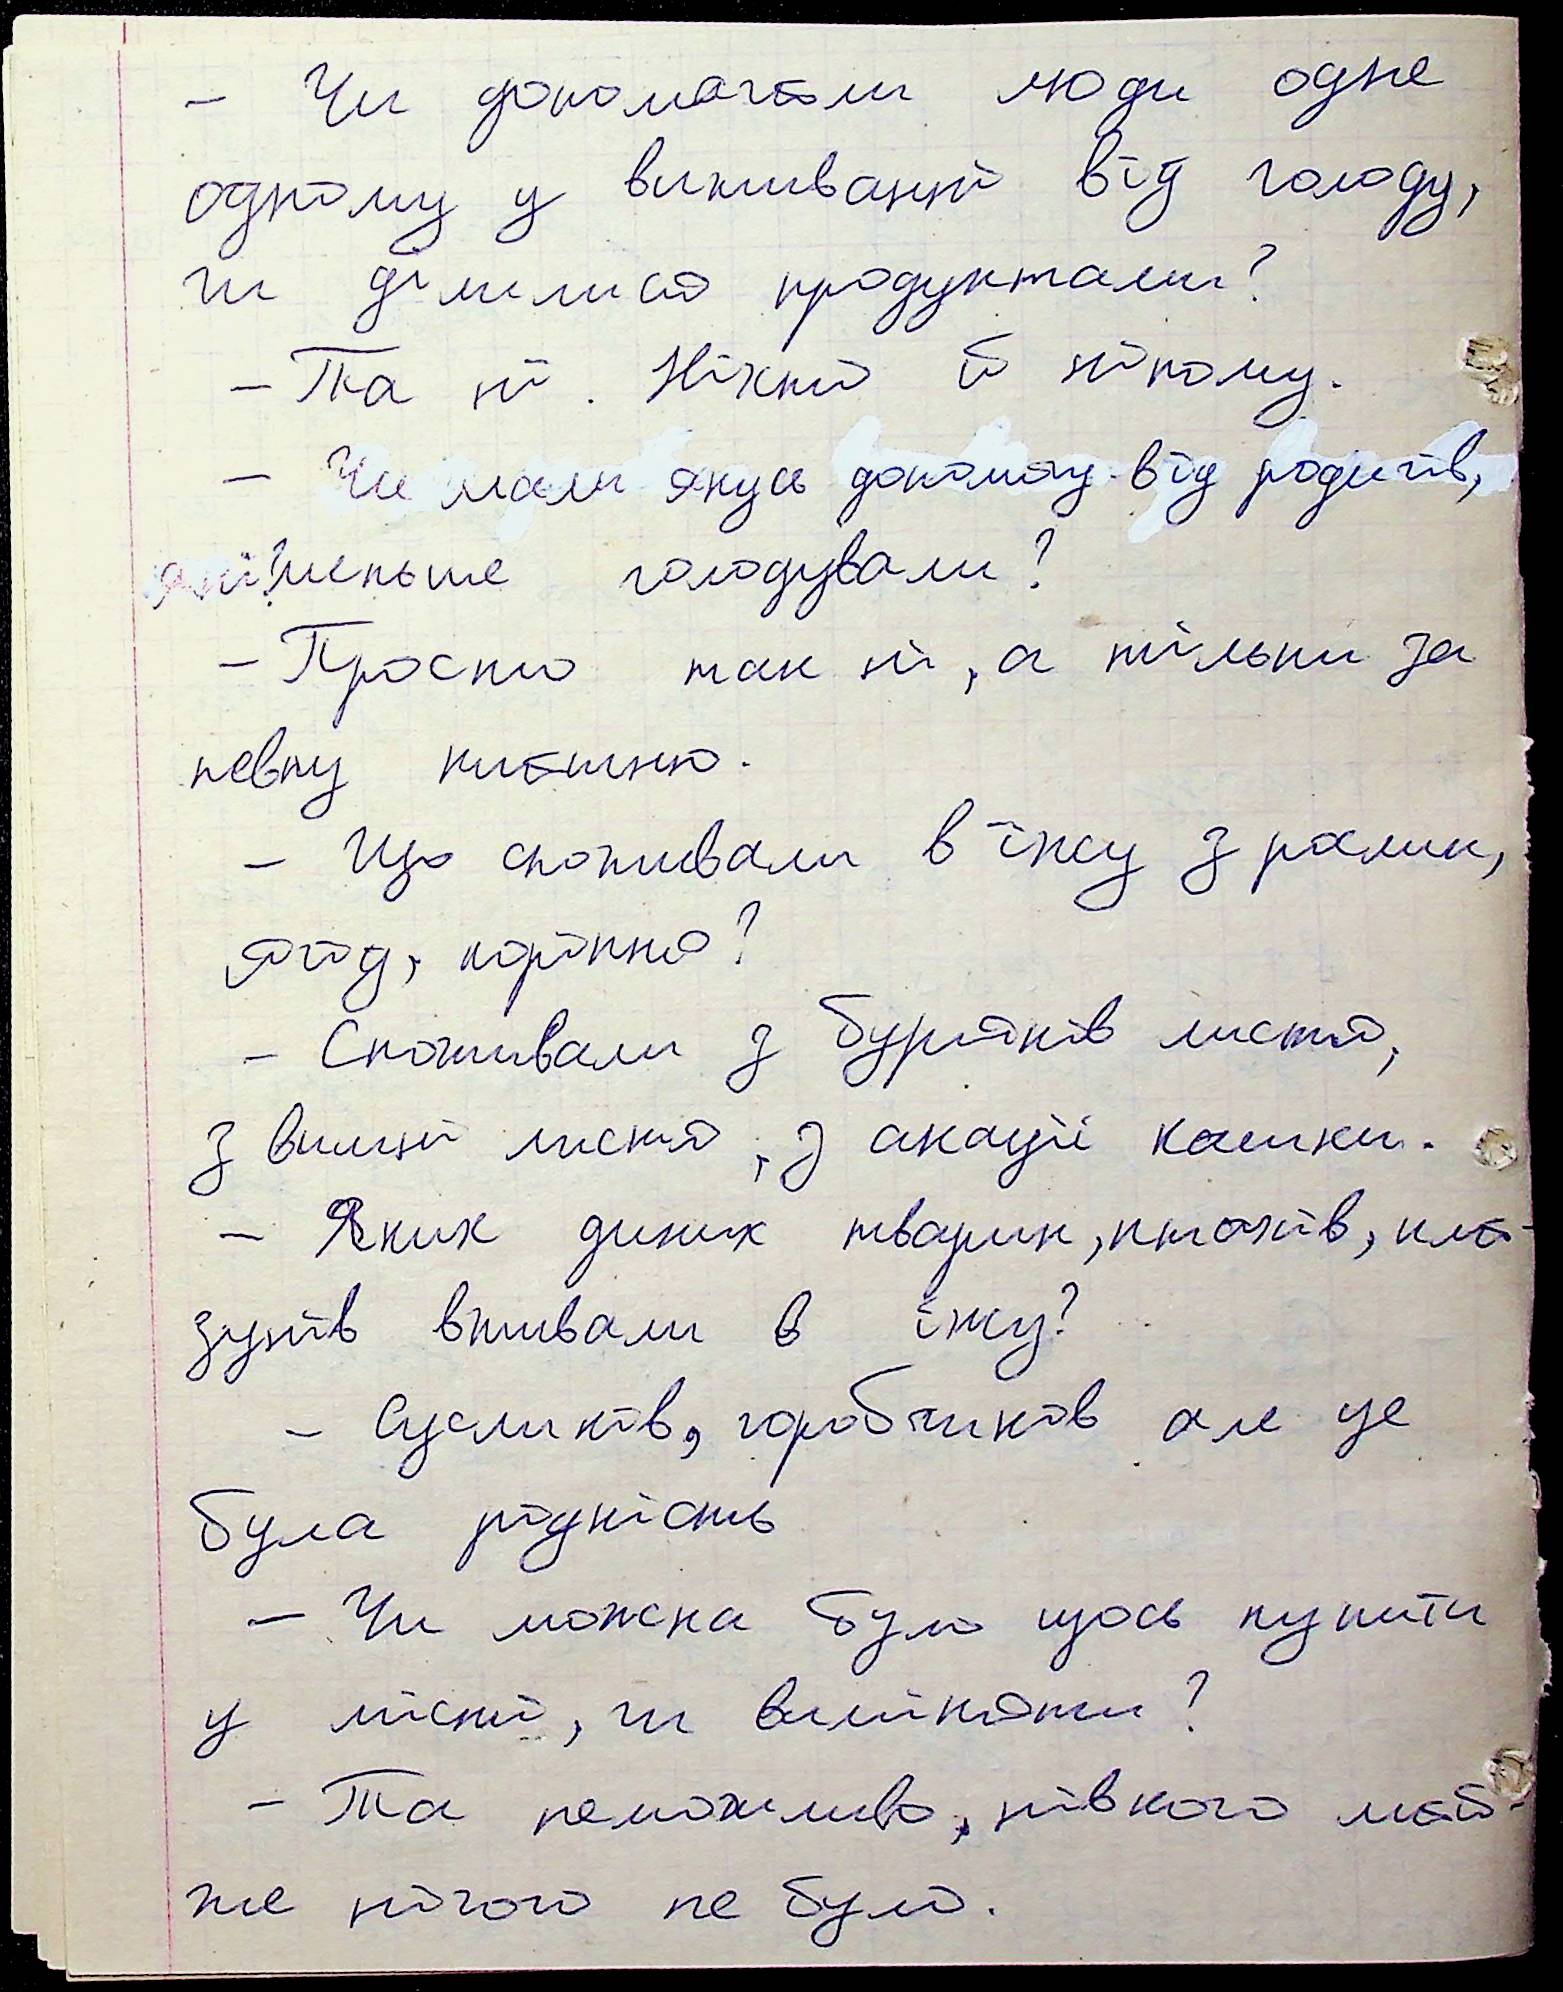 - Чи допомагали люди одне
одному у виживанні від голоду,
чи ділилися продуктами?
- Та ні. Ніхто й нікому.
- Чи мали якусь допомогу від родичів,
які меньше голодували?
- Просто так ні, а тільки за
певну платню.
- Що споживали в їжу з рослин,
ягід, коріння?
- Споживали з буряків листя,
з вишні листя, з акації кашки.
- Яких диких тварин, птахів, пла-
зунів вживали в їжу?
- Сусликів, горобчиків але це
була рідкість
- Чи можна було щось купити
у місті, чи виміняти?
- Та неможливо, ні в кого май-
же нічого не було.